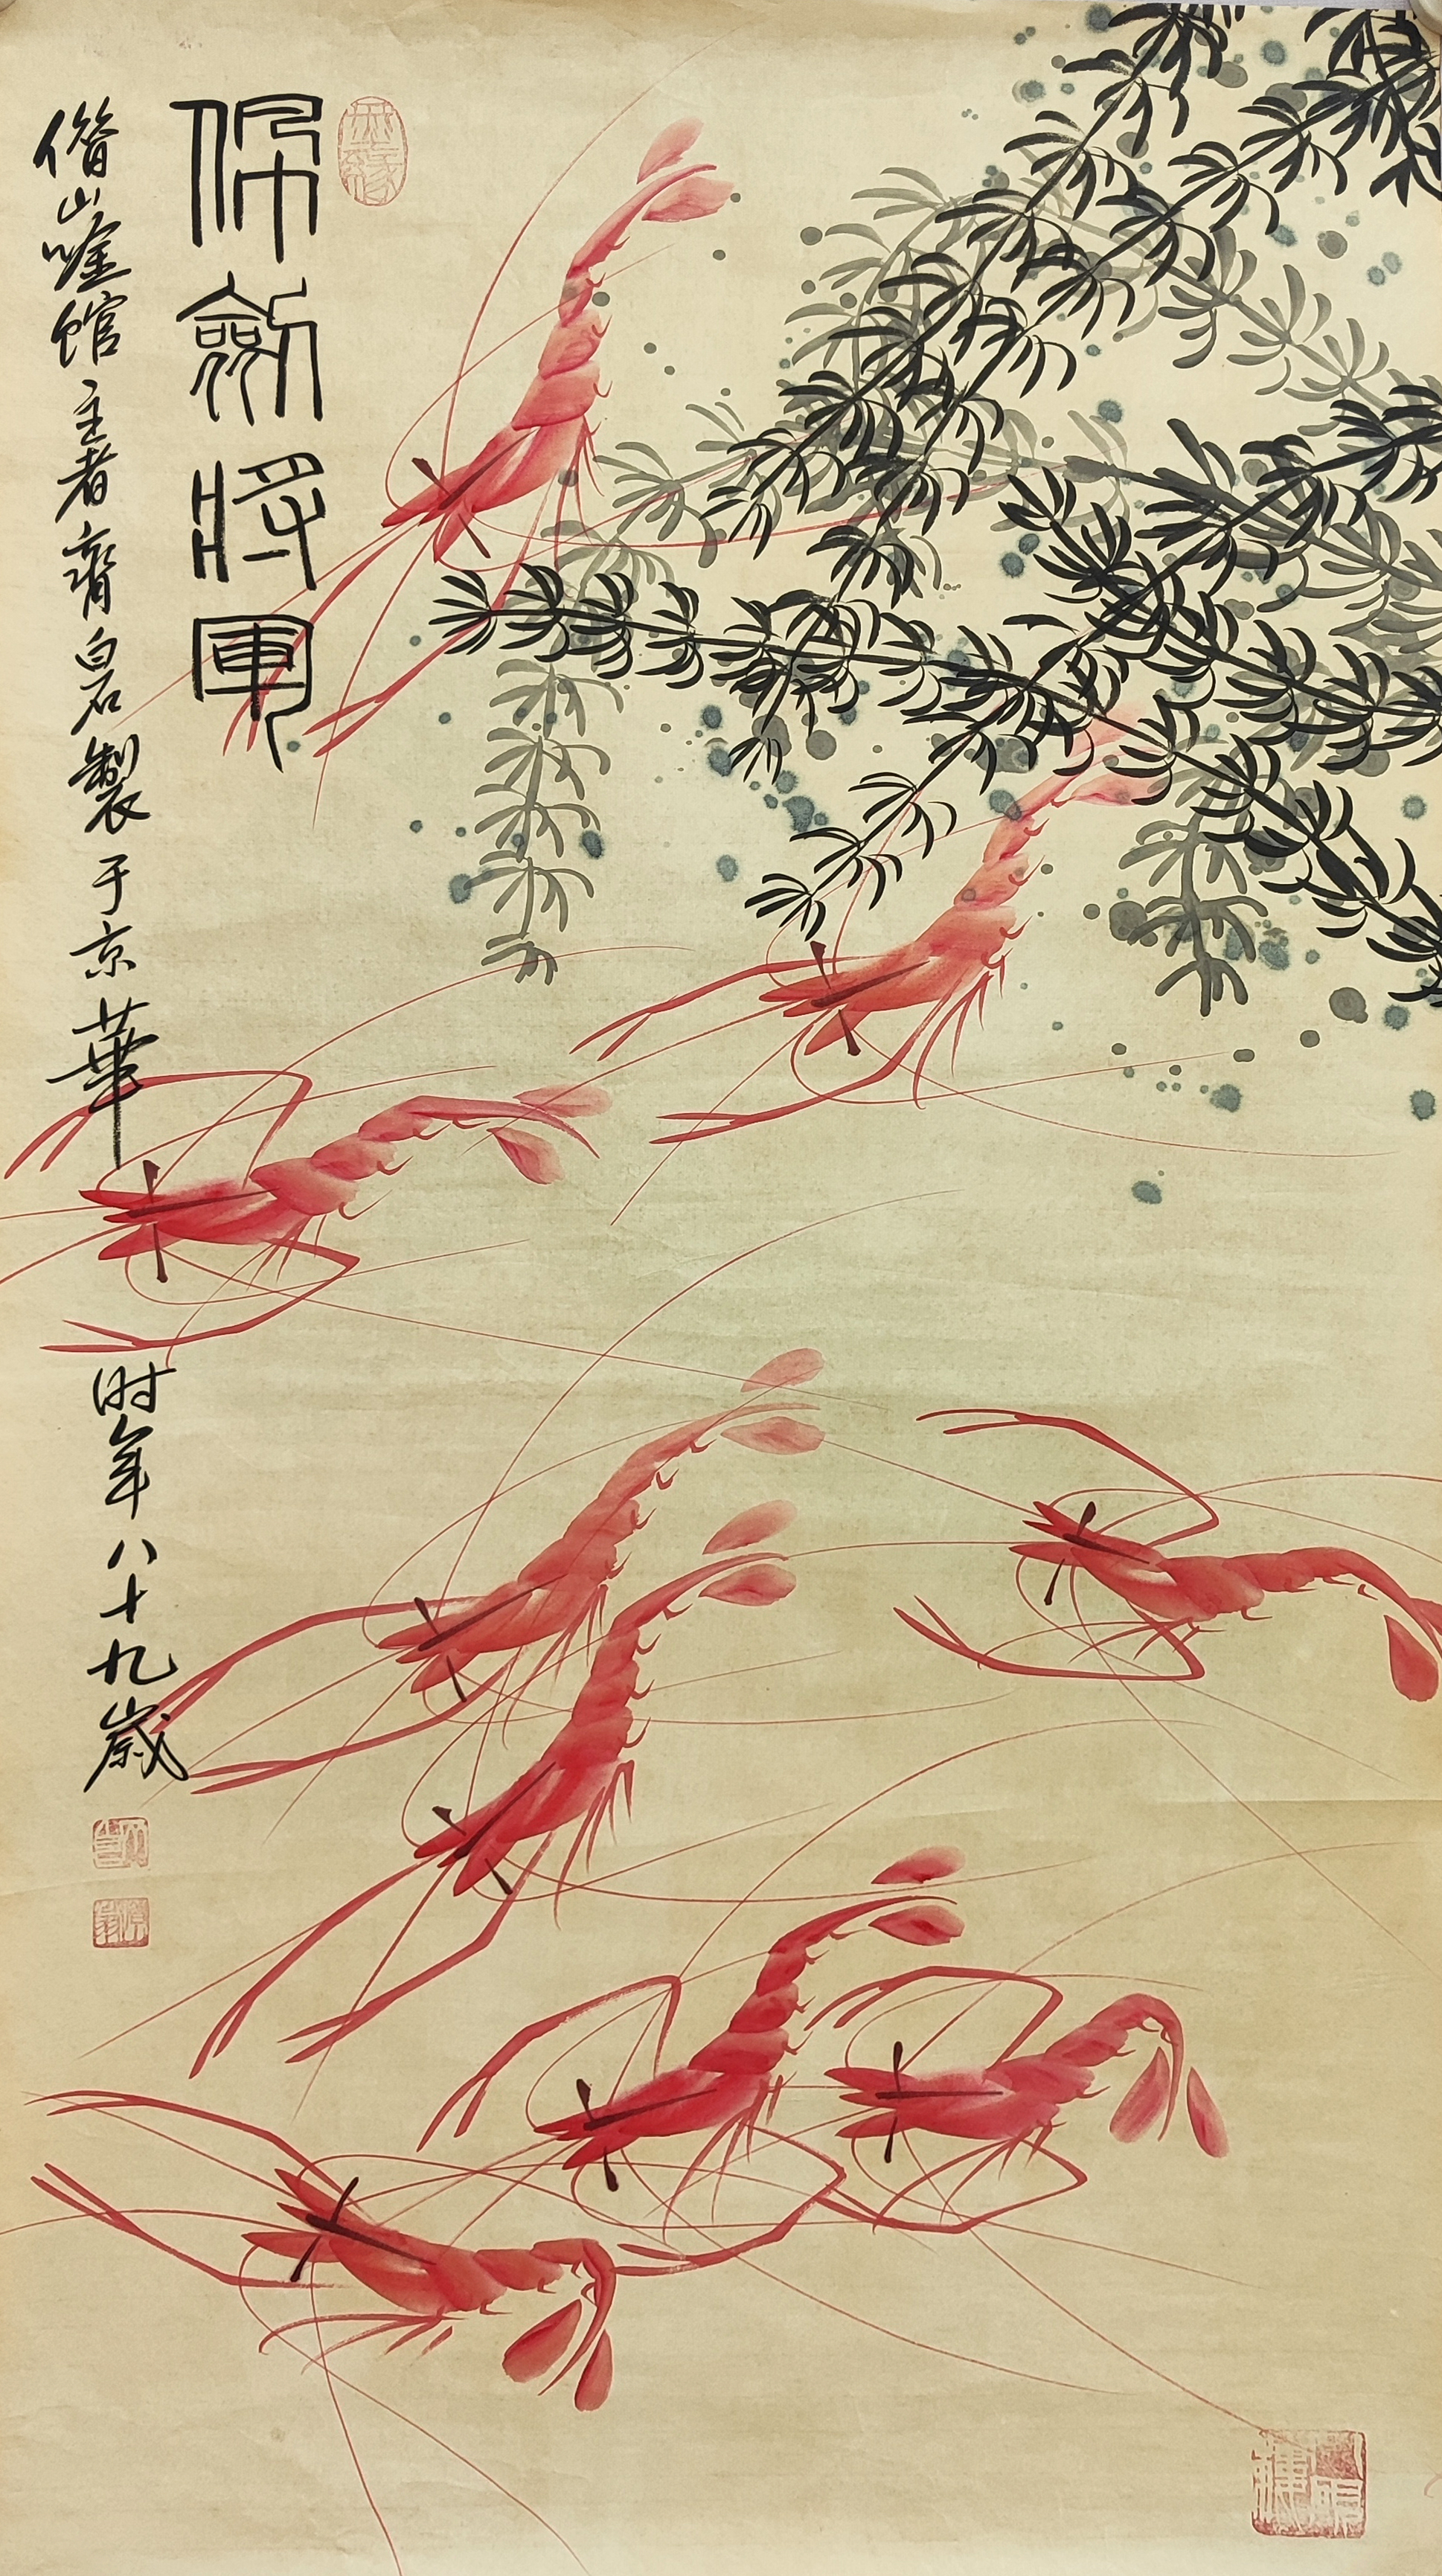 佩劍將軍
借山唫館主者齊白石製于京華
时年八十九歲